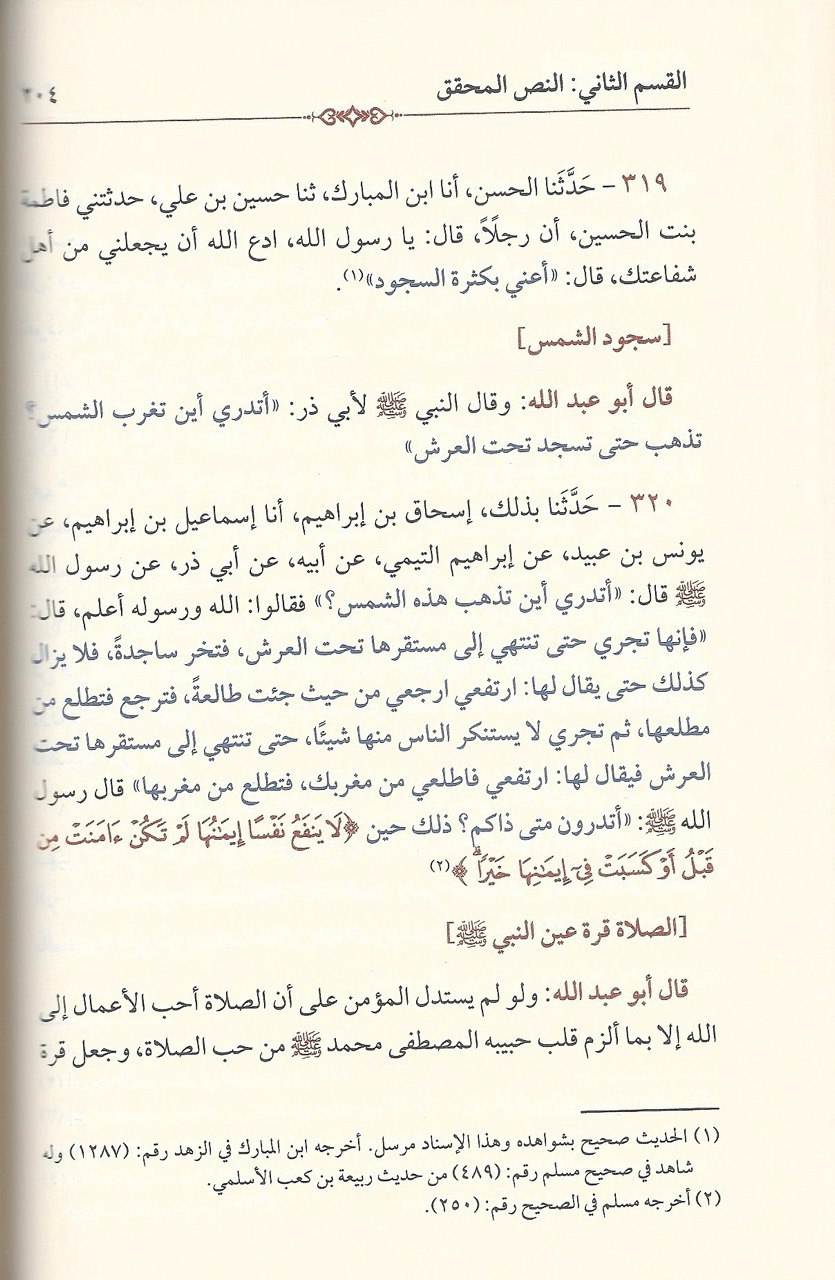 القسم الثاني: النص المحقق
٣٠٤
٣١٩ – حَدَّثَنا الحسن، أنا ابن المبارك، ثنا حسين بن علي، حدثتني فاطمة
بنت الحسين، أن رجلًاً، قال: يا رسول الله، ادع الله أن يجعلني من أهل
شفاعتك، قال: «أعني بكثرة السجود»(١).
[سجود الشمس]
قال أبو عبد الله: وقال النبي ﷺ لأبي ذر: «أتدري أين تغرب الشمس؟
تذهب حتى تسجد تحت العرش»
٣٢٠ – حَدَّثَنا بذلك، إسحاق بن إبراهيم، أنا إسماعيل بن إبراهيم، عن
يونس بن عبيد، عن إبراهيم التيمي، عن أبيه، عن أبي ذر، عن رسول الله
ﷺ قال: «أتدري أين تذهب هذه الشمس؟» فقالوا: الله ورسوله أعلم، قال:
«فإنها تجري حتى تنتهي إلى مستقرها تحت العرش، فتخر ساجدةً، فلا يزال
كذلك حتى يقال لها: ارتفعي ارجعي من حيث جئت طالعةً، فترجع فتطلع من
مطلعها، ثم تجري لا يستنكر الناس منها شيئًا، حتى تنتهي إلى مستقرها تحت
العرش فيقال لها: ارتفعي فاطلعي من مغربك، فتطلع من مغربها» قال رسول
الله ﷺ: «أتدرون متى ذاكم؟ ذلك حين ﴿لَا يَنفَعُ نَفْسًا إِيمَٰنُهَا لَمْ تَكُنْ ءَامَنَتْ مِن
قَبْلُ أَوْ كَسَبَتْ فِىٓ إِيمَٰنِهَا خَيْرًاۗ﴾(٢)
[الصلاة قرة عين النبي ﷺ]
قال أبو عبد الله: ولو لم يستدل المؤمن على أن الصلاة أحب الأعمال إلى
الله إلا بما ألزم قلب حبيبه المصطفى محمد ﷺ من حب الصلاة، وجعل قرة
(١) الحديث صحيح بشواهده وهذا الإسناد مرسل. أخرجه ابن المبارك في الزهد رقم: (١٢٨٧) وله
شاهد في صحيح مسلم رقم: (٤٨٩) من حديث ربيعة بن كعب الأسلمي.
(٢) أخرجه مسلم في الصحيح رقم: (٢٥٠).